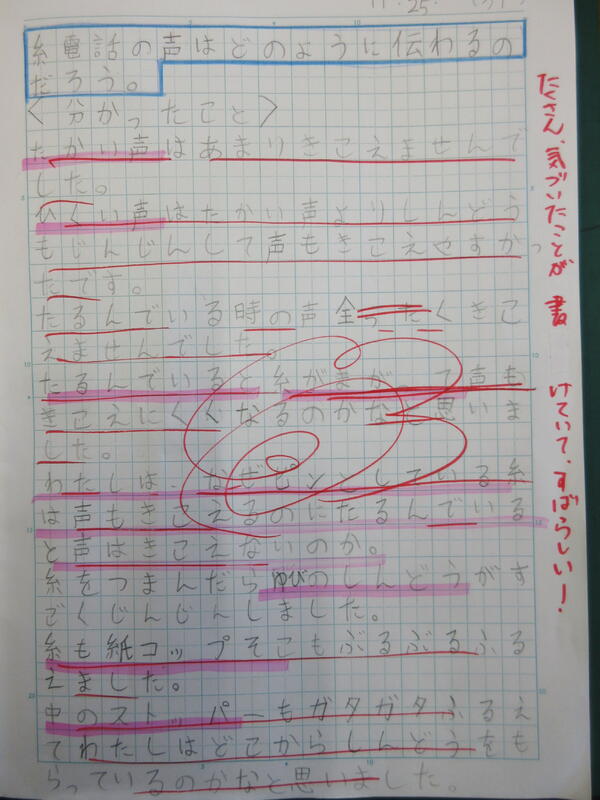 11.25.
糸電話の声はどのように伝わるの
だろう。
〈分かったこと〉
たかい声はあまりきこえませんで
した。
ひくい声はたかい声よりしんどう
もじんじんして声もきこえやすかっ
たです。
たるんでいる時の声全ったくきこ
えませんでした。
たるんでいると糸がまがって声も
きこえにくくなるのかなと思いま
した。
わたしは、なぜピンとしている糸
は声もきこえるのにたるんでいる
と声はきこえないのか。
糸をつまんだらゆびのしんどうがす
ごくじんじんしました。
糸も紙コップそこもぶるぶるふる
えました。
中のストッパーもガタガタふるえ
てわたしはどこからしんどうをも
らっているのかなと思いました。
たくさん、気づいたことが書けていて、すばらしい!